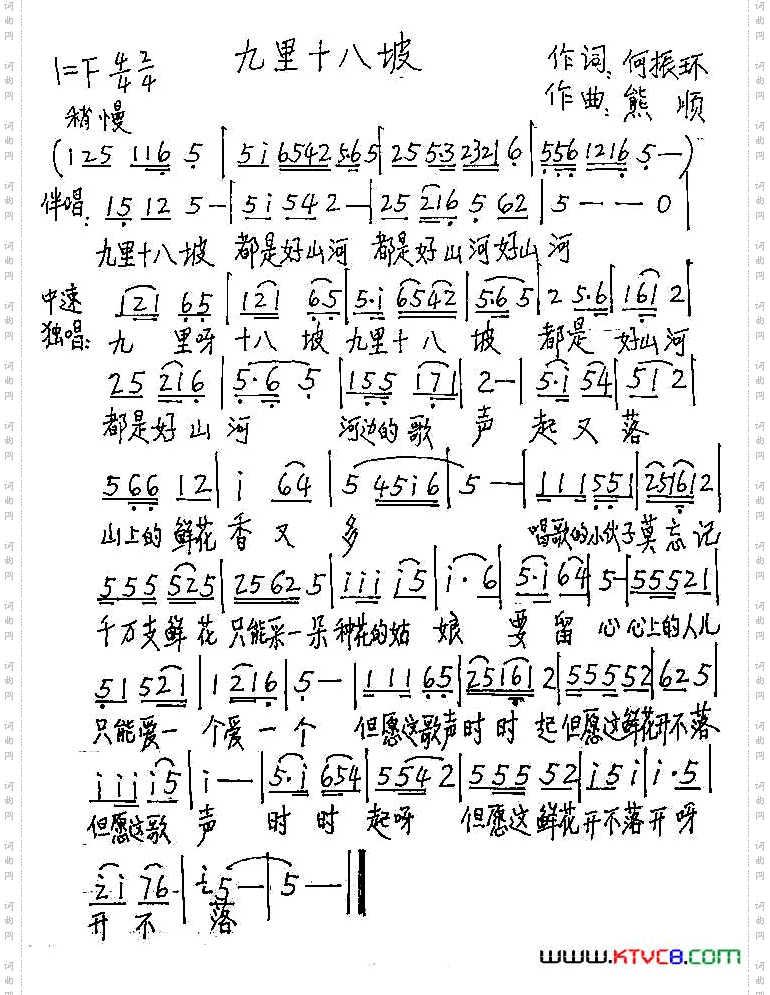 九里十八坡
1=F 4/4 2/4
作词:何振环
作曲:熊顺
稍慢
(1 2 5 1 1 6 5 | 5 i 6 5 4 2 5·6 5 | 2 5 5·3 2 3 2 1 6 | 5 5 6 1 2 1 6 5 —)
伴唱: 1 5 1 2 5 — | 5 i 5 4 2 — | 2 5 2 1 6 5 6 2 | 5 — — 0 |
九里十八坡 都是好山河 都是好山河好山河
中速
独唱: 1 2 1 6 5 | 1 2 1 6 5 | 5·i 6 5 4 2 | 5·6 5 | 2 5·6 | 1 6 1 2 |
九 里呀 十八 坡 九里十八 坡 都是 好山河
2 5 2 1 6 | 5·6 5 | 1 5 5 1 7 1 | 2 — | 5·i 5 4 | 5 1 2 |
都是好山河 河边的歌 声 起又落
5 6 6 1 2 | i 6 4 | 5 4 5 i 6 | 5 — | 1 1 1 5 5 1 | 2 5 1 6 1 2 |
山上的鲜花香又 多 唱歌的小伙子莫忘记
5 5 5 5 2 5 | 2 5 6 2 5 | i i i i 5 | i·6 | 5·i 6 4 | 5 — | 5 5 5 2 1 |
千万支鲜花只能采一朵种花的姑 娘 要留 心心上的人儿
5 1 5 2 1 | 1 2 1 6 | 5 — | 1 1 1 6 5 | 2 5 1 6 1 2 | 5 5 5 5 2 | 6 2 5 |
只能爱一 个爱一个 但愿这歌声时时 起但愿这鲜花开不落
i i i i 5 | i — | 5·i 6 5 4 | 5 5 4 2 | 5 5 5 5 2 | i 5 i | i·5 |
但愿这歌 声 时时 起呀 但愿这鲜花开不落开呀
i i 7 6 | i 5 — | 5 — ||
开 不 落
www.KTVC8.com
词曲网